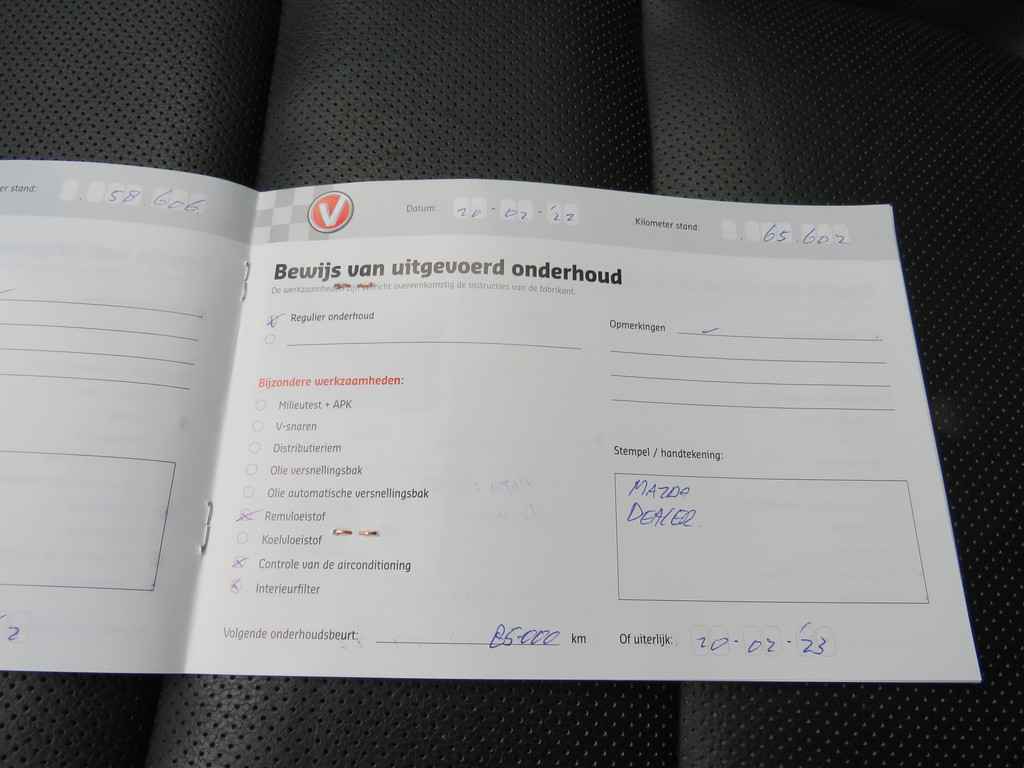 er stand: 58.606
V
Datum: 20-02-'22
Kilometer stand: 65.602
Bewijs van uitgevoerd onderhoud
De werkzaamheden zijn verricht overeenkomstig de instructies van de fabrikant.
Regulier onderhoud
Opmerkingen
Bijzondere werkzaamheden:
Milieutest + APK
V-snaren
Distributieriem
Olie versnellingsbak
Olie automatische versnellingsbak
Remvloeistof
Koelvloeistof
Controle van de airconditioning
Interieurfilter
Stempel / handtekening:
MAZDA
DEALER.
Volgende onderhoudsbeurt: 85.000 km
Of uiterlijk: 20-02-'23